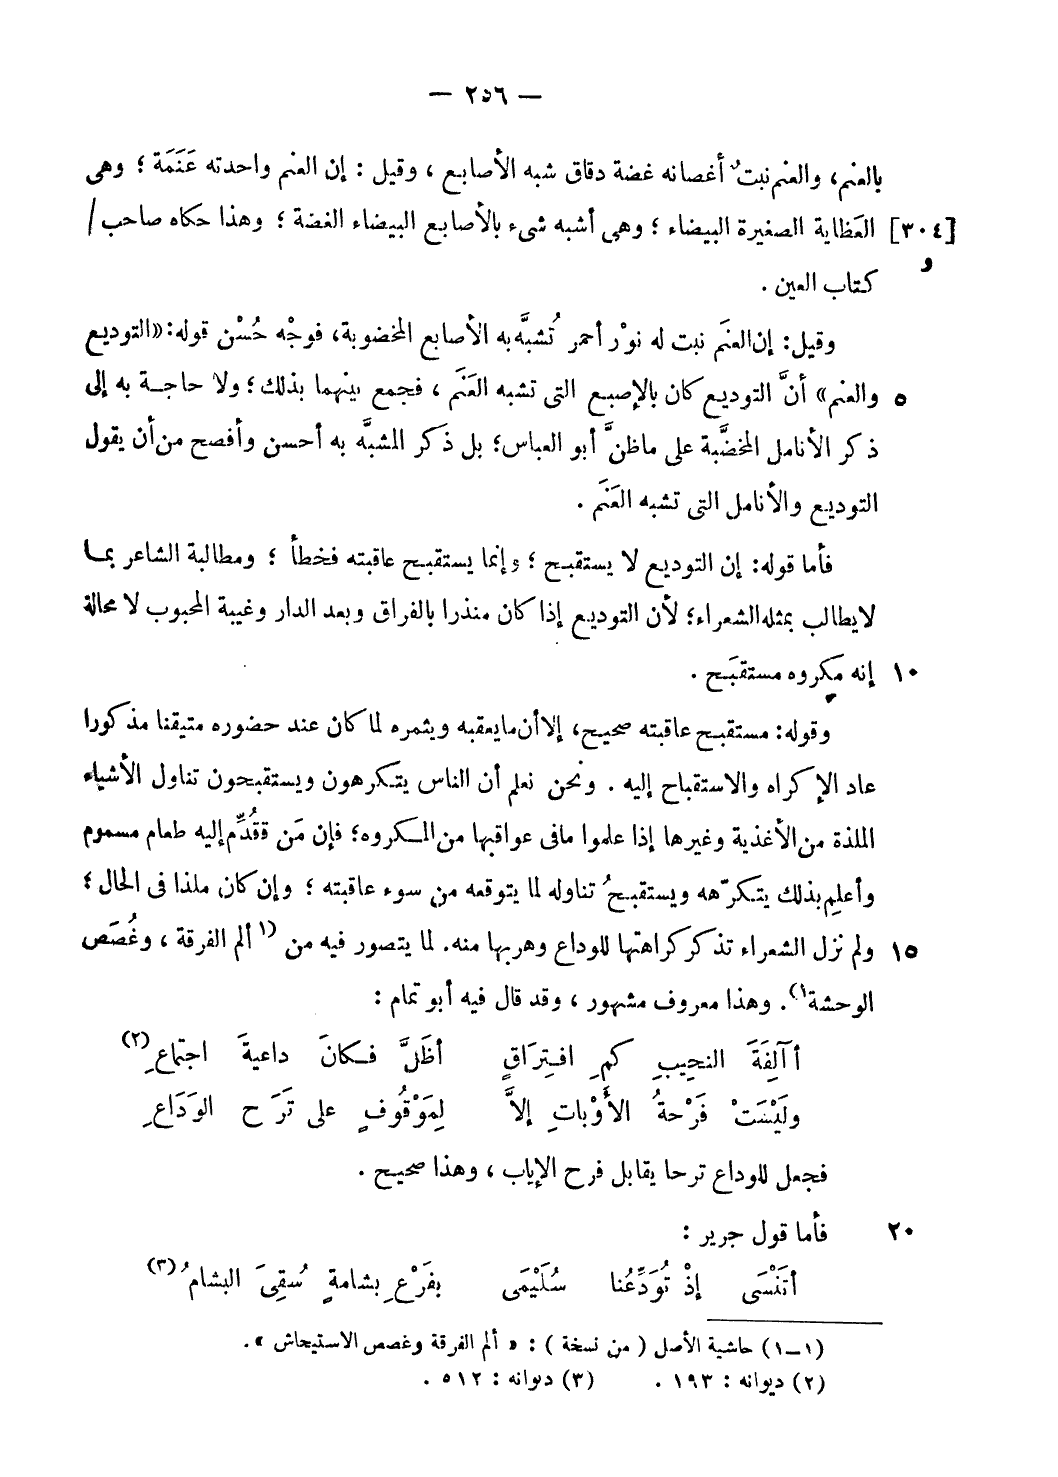 — ٢٥٦ —
بالعنم، والعنم نبتٌ أغصانه غضة دقاق شبه الأصابع ، وقيل : إن العنم واحدته عَنَمَة ؛ وهى
[٣٠٤] العَظاية الصغيرة البيضاء ؛ وهى أشبه شىء بالأصابع البيضاء الغضة ؛ وهذا حكاه صاحب /
و
كتاب العين .
وقيل: إن العنَم نبت له نوْر أحمر تُشبَّه به الأصابع المخضوبة، فوجْه حُسْن قوله: «التوديع
٥ والعنم» أنَّ التوديع كان بالإصبع التى تشبه العَنَم ، فجمع بينهما بذلك؛ ولا حاجة به إلى
ذكر الأنامل المخضَّبة على ما ظنَّ أبو العباس؛ بل ذكر المشبَّه به أحسن وأفصح من أن يقول
التوديع والأنامل التى تشبه العَنَم .
فأما قوله: إن التوديع لا يستقبح ؛ وإنما يستقبح عاقبته فخطأ ؛ ومطالبة الشاعر بما
لا يطالب بمثله الشعراء؛ لأن التوديع إذا كان منذرا بالفراق وبعد الدار وغيبة المحبوب لا محالة
١٠ إنه مكروه مستقبَح .
وقوله: مستقبح عاقبته صحيح، إلا أن ما يعقبه ويثمره لما كان عند حضوره متيقنا مذكورا
عاد الإكراه والاستقباح إليه . ونحن نعلم أن الناس يتكرهون ويستقبحون تناول الأشياء
الملذة من الأغذية وغيرها إذا علموا ما فى عواقبها من المكروه؛ فإن مَن قُدِّم إليه طعام مسموم
وأعلم بذلك يتكرّهه ويستقبحُ تناوله لما يتوقعه من سوء عاقبته ؛ وإن كان ملذا فى الحال ؛
١٥ ولم نزل الشعراء تذكر كراهتها للوداع وهربها منه. لما يتصور فيه من (١ ألم الفرقة ، وغُصَص
الوحشة ١). وهذا معروف مشهور ، وقد قال فيه أبو تمام :
أآلِفَةَ النحِيبِ كمِ افتِرَاقٍ أظَلَّ فكانَ داعيةَ اجتماعِ (٢)
ولَيْسَتْ فَرْحةُ الأَوْباتِ إلاَّ لِمَوْقُوفٍ على تَرَحِ الوَدَاعِ
فجعل للوداع ترحا يقابل فرح الإياب ، وهذا صحيح .
٢٠ فأما قول جرير :
أتَنْسَى إذْ تُوَدِّعُنا سُلَيْمَى بفَرْعِ بشامةٍ سُقِىَ البشامُ (٣)
(١–١) حاشية الأصل ( من نسخة ) : « ألم الفرقة وغصص الاستيحاش » .
(٢) ديوانه : ١٩٣ . (٣) ديوانه : ٥١٢ .